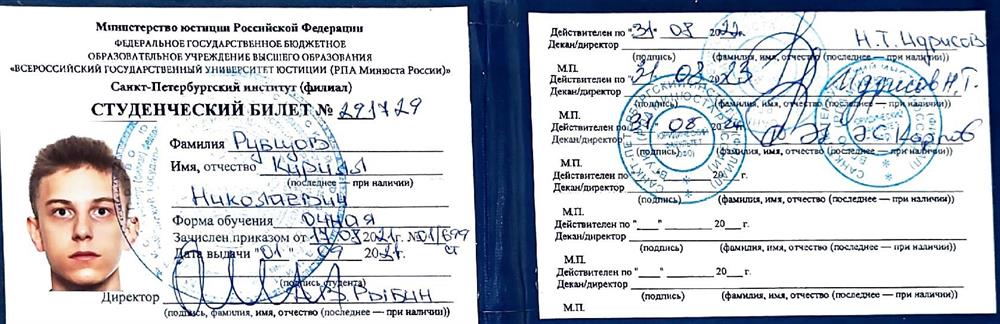 Министерство юстиции Российской Федерации
ФЕДЕРАЛЬНОЕ ГОСУДАРСТВЕННОЕ БЮДЖЕТНОЕ
ОБРАЗОВАТЕЛЬНОЕ УЧРЕЖДЕНИЕ ВЫСШЕГО ОБРАЗОВАНИЯ
«ВСЕРОССИЙСКИЙ ГОСУДАРСТВЕННЫЙ УНИВЕРСИТЕТ ЮСТИЦИИ (РПА Минюста России)»
Санкт-Петербургский институт (филиал)
СТУДЕНЧЕСКИЙ БИЛЕТ № 291729
Фамилия Рубцов
Имя, отчество Кирилл
(последнее — при наличии)
Николаевич
Форма обучения очная
Зачислен приказом от 2021г. №
Дата выдачи "01" 09 2021г.
(подпись студента)
Директор Рыбин
(подпись, фамилия, имя, отчество (последнее — при наличии))
Действителен по "31" 08 2022г.
Декан/директор Н.Т. Идрисов
(подпись) (фамилия, имя, отчество (последнее — при наличии))
М.П.
Действителен по "31" 08 2023г.
Декан/директор Идрисов Н.Т.
(подпись) (фамилия, имя, отчество (последнее — при наличии))
М.П.
Действителен по "31" 08 2024г.
Декан/директор
(подпись) (фамилия, имя, отчество (последнее — при наличии))
М.П.
Действителен по "___" ______ 20___г.
Декан/директор
(подпись) (фамилия, имя, отчество (последнее — при наличии))
М.П.
Действителен по "___" ______ 20___г.
Декан/директор
(подпись) (фамилия, имя, отчество (последнее — при наличии))
М.П.
Действителен по "___" ______ 20___г.
Декан/директор
(подпись) (фамилия, имя, отчество (последнее — при наличии))
М.П.